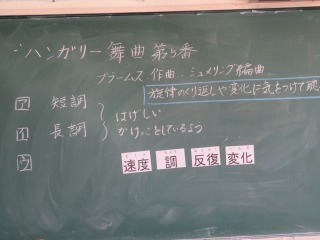 ハンガリー舞曲第5番
ブラームス作曲 シュメリング編曲
旋律のくり返しや変化に気をつけて聴
ア 短調
イ 長調
はげしい
かけっこしているよう
ウ
速度 調 反復 変化